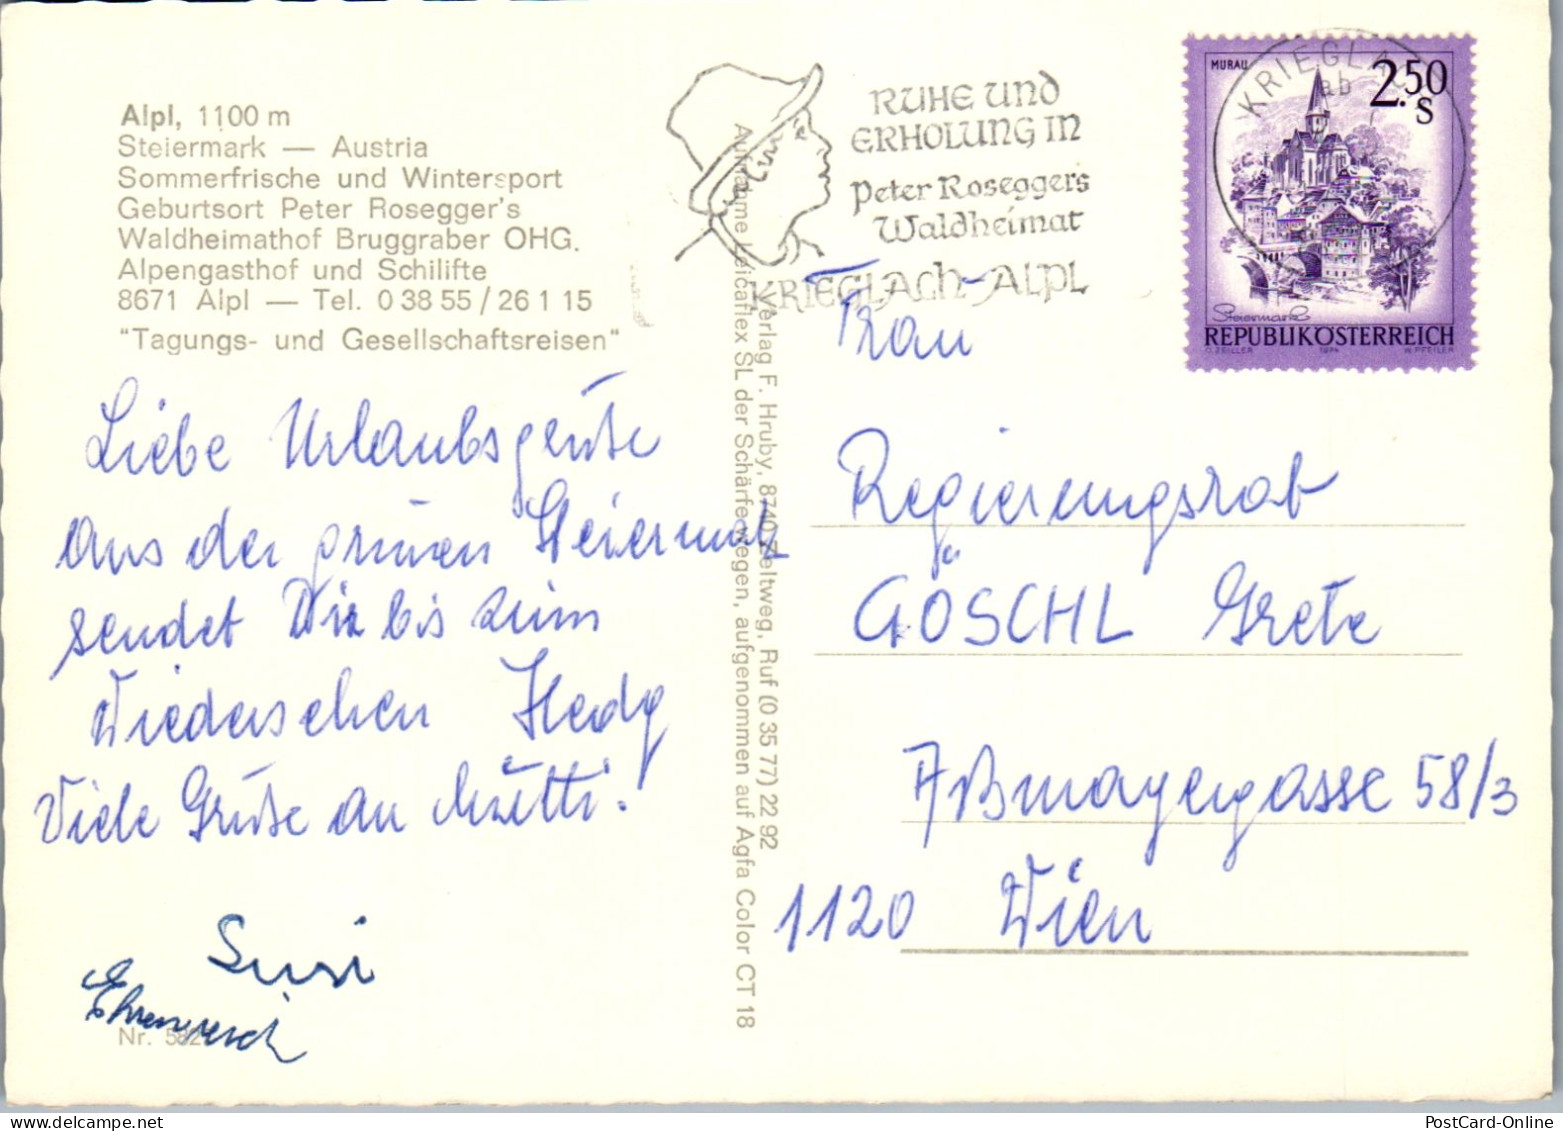 Alpl, 1100 m
Steiermark — Austria
Sommerfrische und Wintersport
Geburtsort Peter Rosegger's
Waldheimathof Bruggraber OHG.
Alpengasthof und Schilifte
8671 Alpl — Tel. 0 38 55 / 26 1 15
"Tagungs- und Gesellschaftsreisen"
Liebe Urlaubsgrüße
aus der grünen Steiermark
sendet Dir bis zum
Wiedersehen Hedy
Viele Grüße an Mutti!
Susi
Ehrenreich
Nr. 582
Verlag F. Hruby, 8740 Zeltweg, Ruf (0 35 77) 22 92
Aufnahme Leicaflex SL der Schärfe wegen, aufgenommen auf Agfa Color CT 18
RUHE UND
ERHOLUNG IN
Peter Roseggers
Waldheimat
KRIEGLACH-ALPL
KRIEGLACH
ab
MURAU
2.50
S
Steiermark
REPUBLIK ÖSTERREICH
O. ZEILLER 1974 W. PFEILER
Frau
Regierungsrat
GÖSCHL Grete
Aßmayergasse 58/3
1120 Wien
PostCard-Online